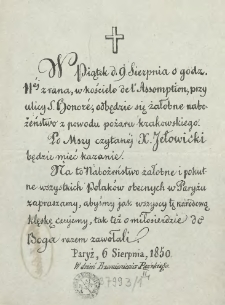 W Piątek d. 9 Sierpnia o godz.
11ej z rana, w kościele de l'Assomption, przy
ulicy S. Honoré, odbędzie się żałobne nabo-
żeństwo z powodu pożaru krakowskiego.
Po Mszy czytanej X. Jełowicki
będzie mieć kazanie.
Na to Nabożeństwo żałobne i pokut-
ne wszystkich Polaków obecnych w Paryżu
zapraszamy, abyśmy jak wszyscy tę narodową
klęskę czujemy, tak też o miłosierdzie do
Boga razem zawołali.
Paryż, 6 Sierpnia, 1850.
W dzień Przemienienia Pańskiego.